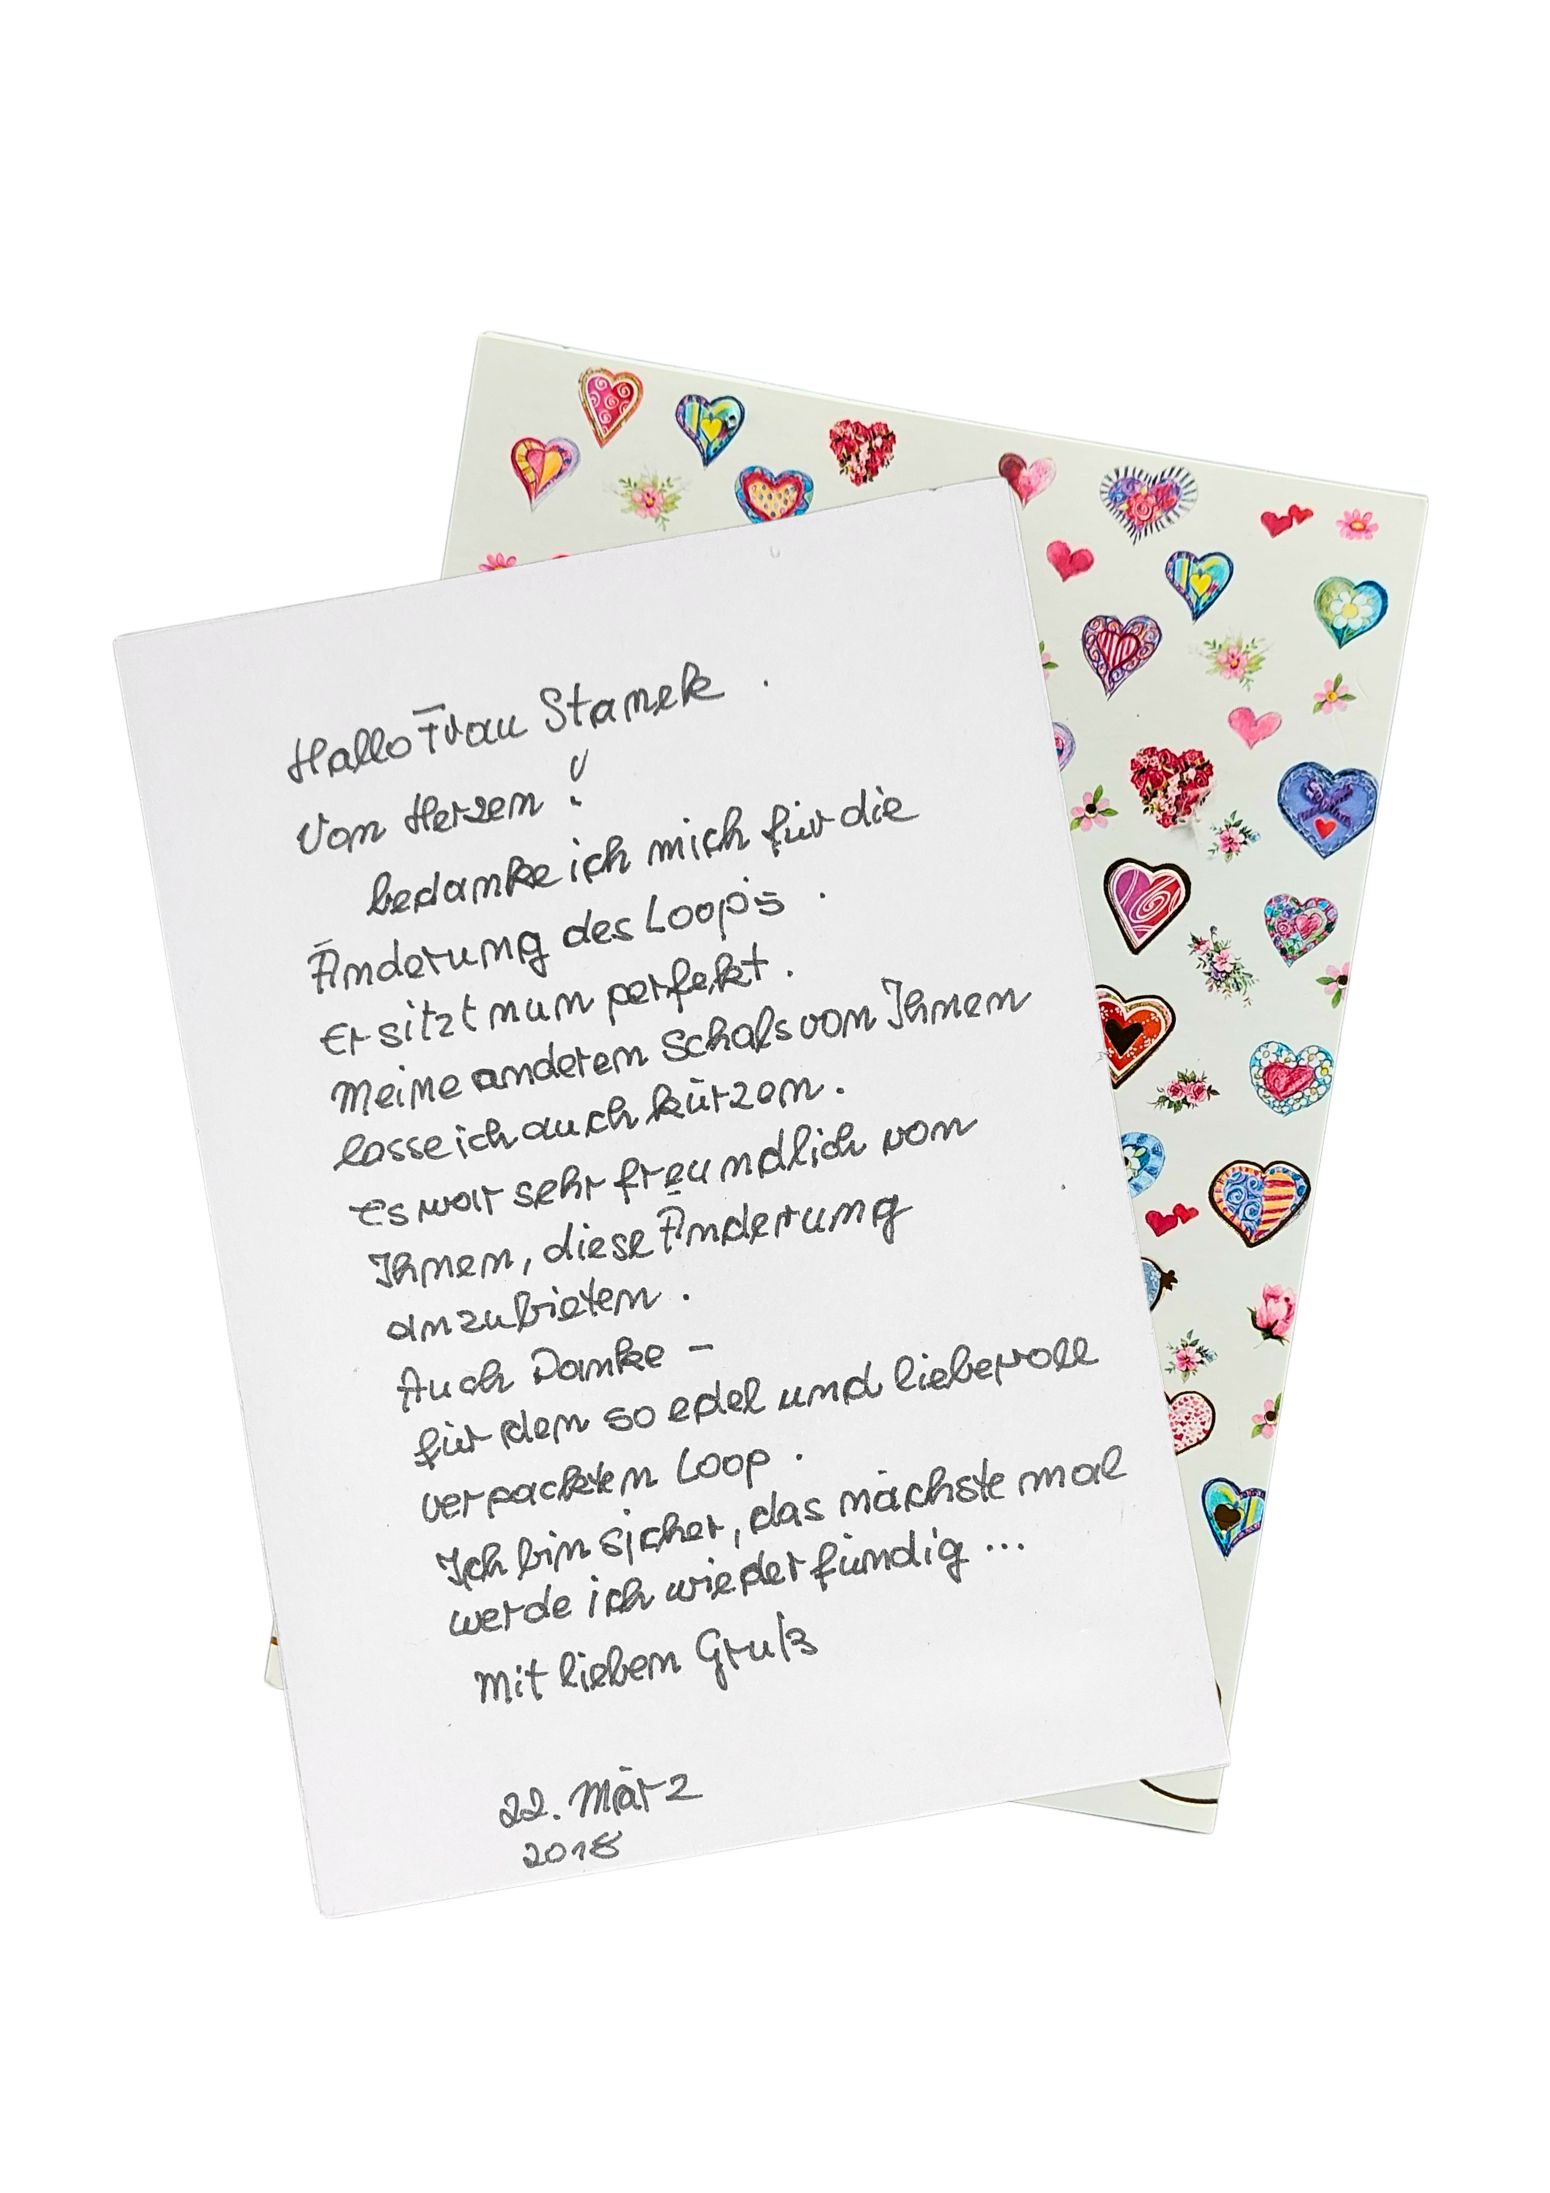 Hallo Frau Stanek.
Von Herzen!
bedanke ich mich für die
Änderung des Loop's.
Er sitzt nun perfekt.
Meine anderen Schals von Ihnen
lasse ich auch kürzen.
Es war sehr freundlich von
Ihnen, diese Änderung
anzubieten.
Auch Danke -
für den so edel und liebevoll
verpackten Loop.
Ich bin sicher, das nächste mal
werde ich wieder fündig...
Mit lieben Gruß
22. März
2018